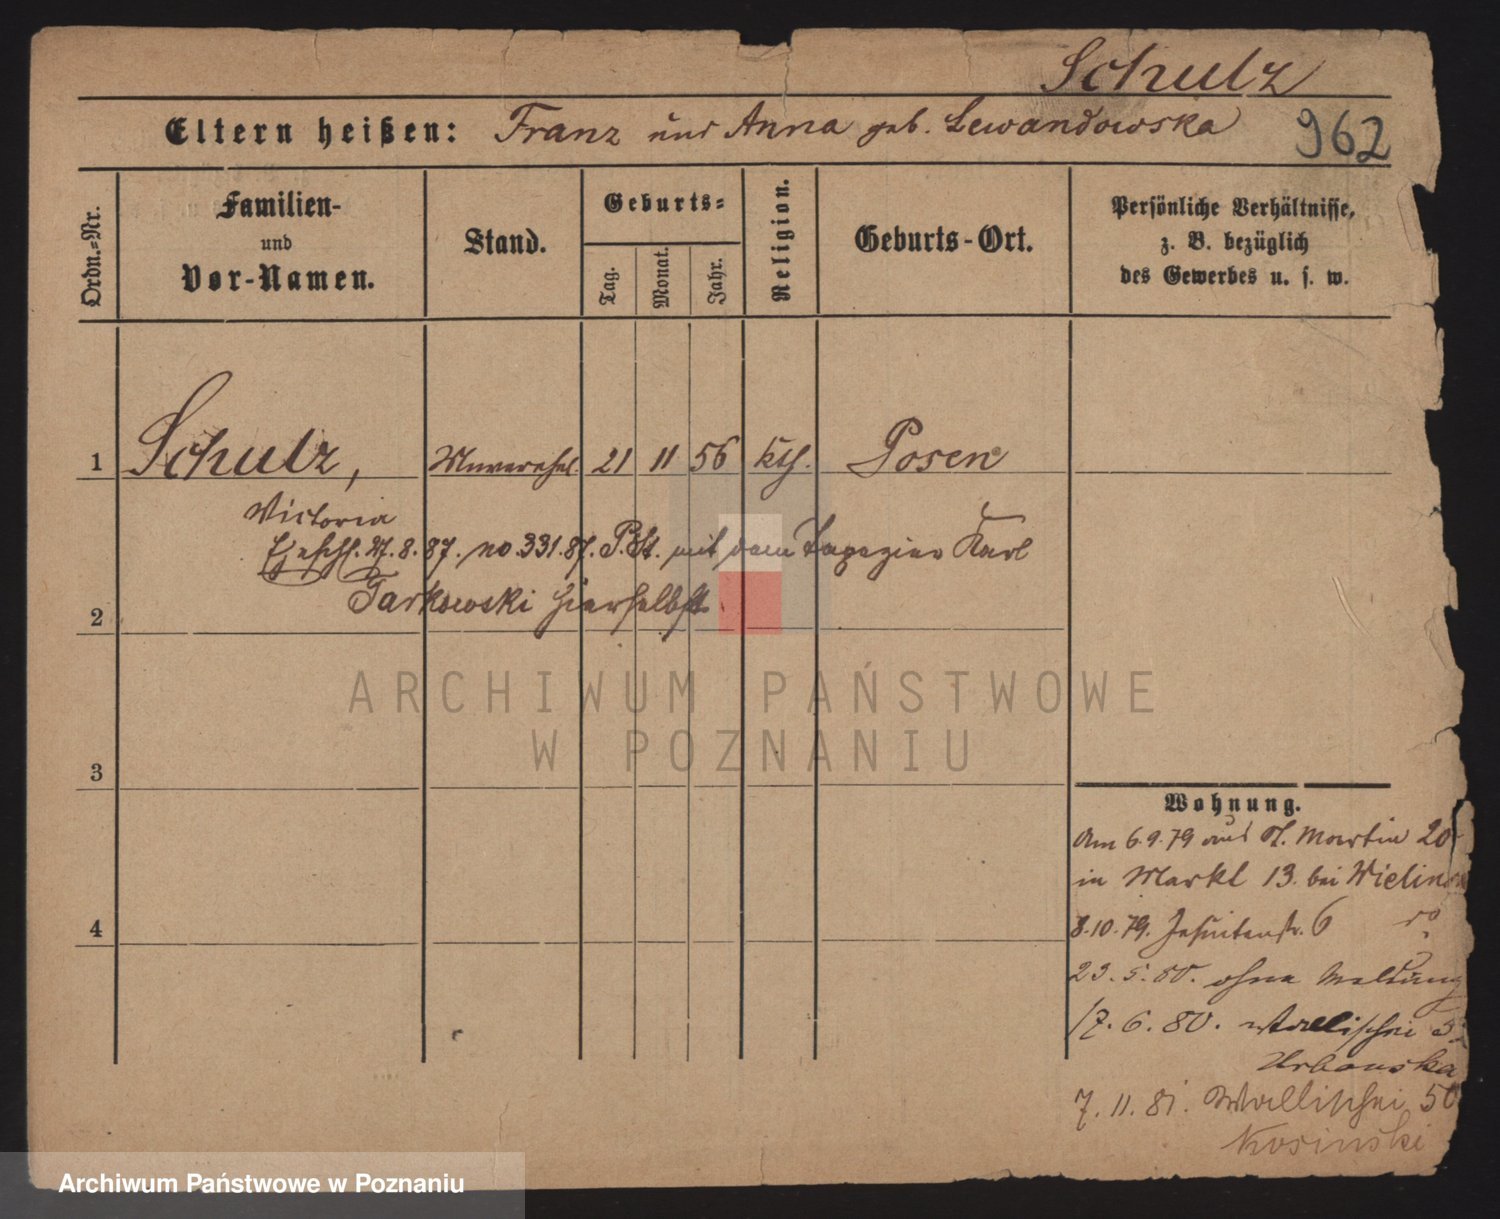 Schulz
Eltern heißen: Franz und Anna geb. Lewandowska
962
Ordn.-Nr.
Familien-
und
Vor-Namen.
Stand.
Geburts-
Tag.
Monat.
Jahr.
Religion.
Geburts-Ort.
Persönliche Verhältnisse,
z. B. bezüglich
des Gewerbes u. s. w.
1 Schulz, Unverehel. 21 11 56 kth. Posen
Victoria
Eheschl. 27.8.87. no 331.87. P.St. mit dem Tapezier Karl
2 Tarkowski hierselbst
3
4
Wohnung.
Am 6.9.79 aus St. Martin 20
in Markt 13. bei
8.10.79. Jesuitenstr. 6
23.5.80. ohne Meldung
17.6.80. Wallischei
Urbanska
7.11.81. Wallischei 50
Kosinski
ARCHIWUM PAŃSTWOWE
W POZNANIU
Archiwum Państwowe w Poznaniu